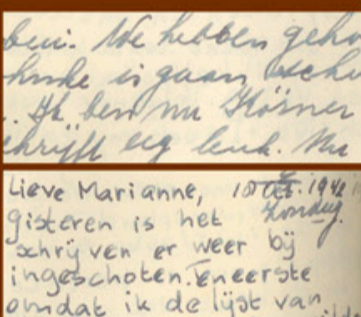 ben. We hebben geho
hinke is gaan sche
.. Ik ben nu Körner
chrijft erg leuk. Nu
Lieve Marianne, 18 Oct. 1942
Zondag.
gisteren is het
schrijven er weer bij
ingeschoten. Teneerste
omdat ik de lijst van